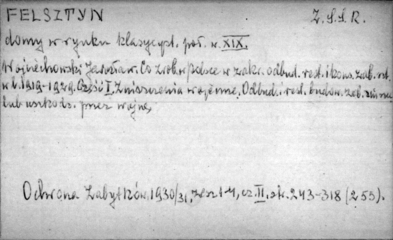 FELSZTYN Z.S.S.R.
domy w rynku klasycyst. poł. w. XIX.
Wojciechowski Jarosław. Co zrob. w Polsce w zakr. odbud. rest. i kons. zab. ret.
w l. 1919-1929. Część I. Zniszczenia wojenne. Odbud. i rest. budow. zab. zniszcz.
lub uszkodz. przez wojnę,
Ochrona Zabytków, 1930/31, zesz. 1-4, cz. II, str. 243-318 (255).